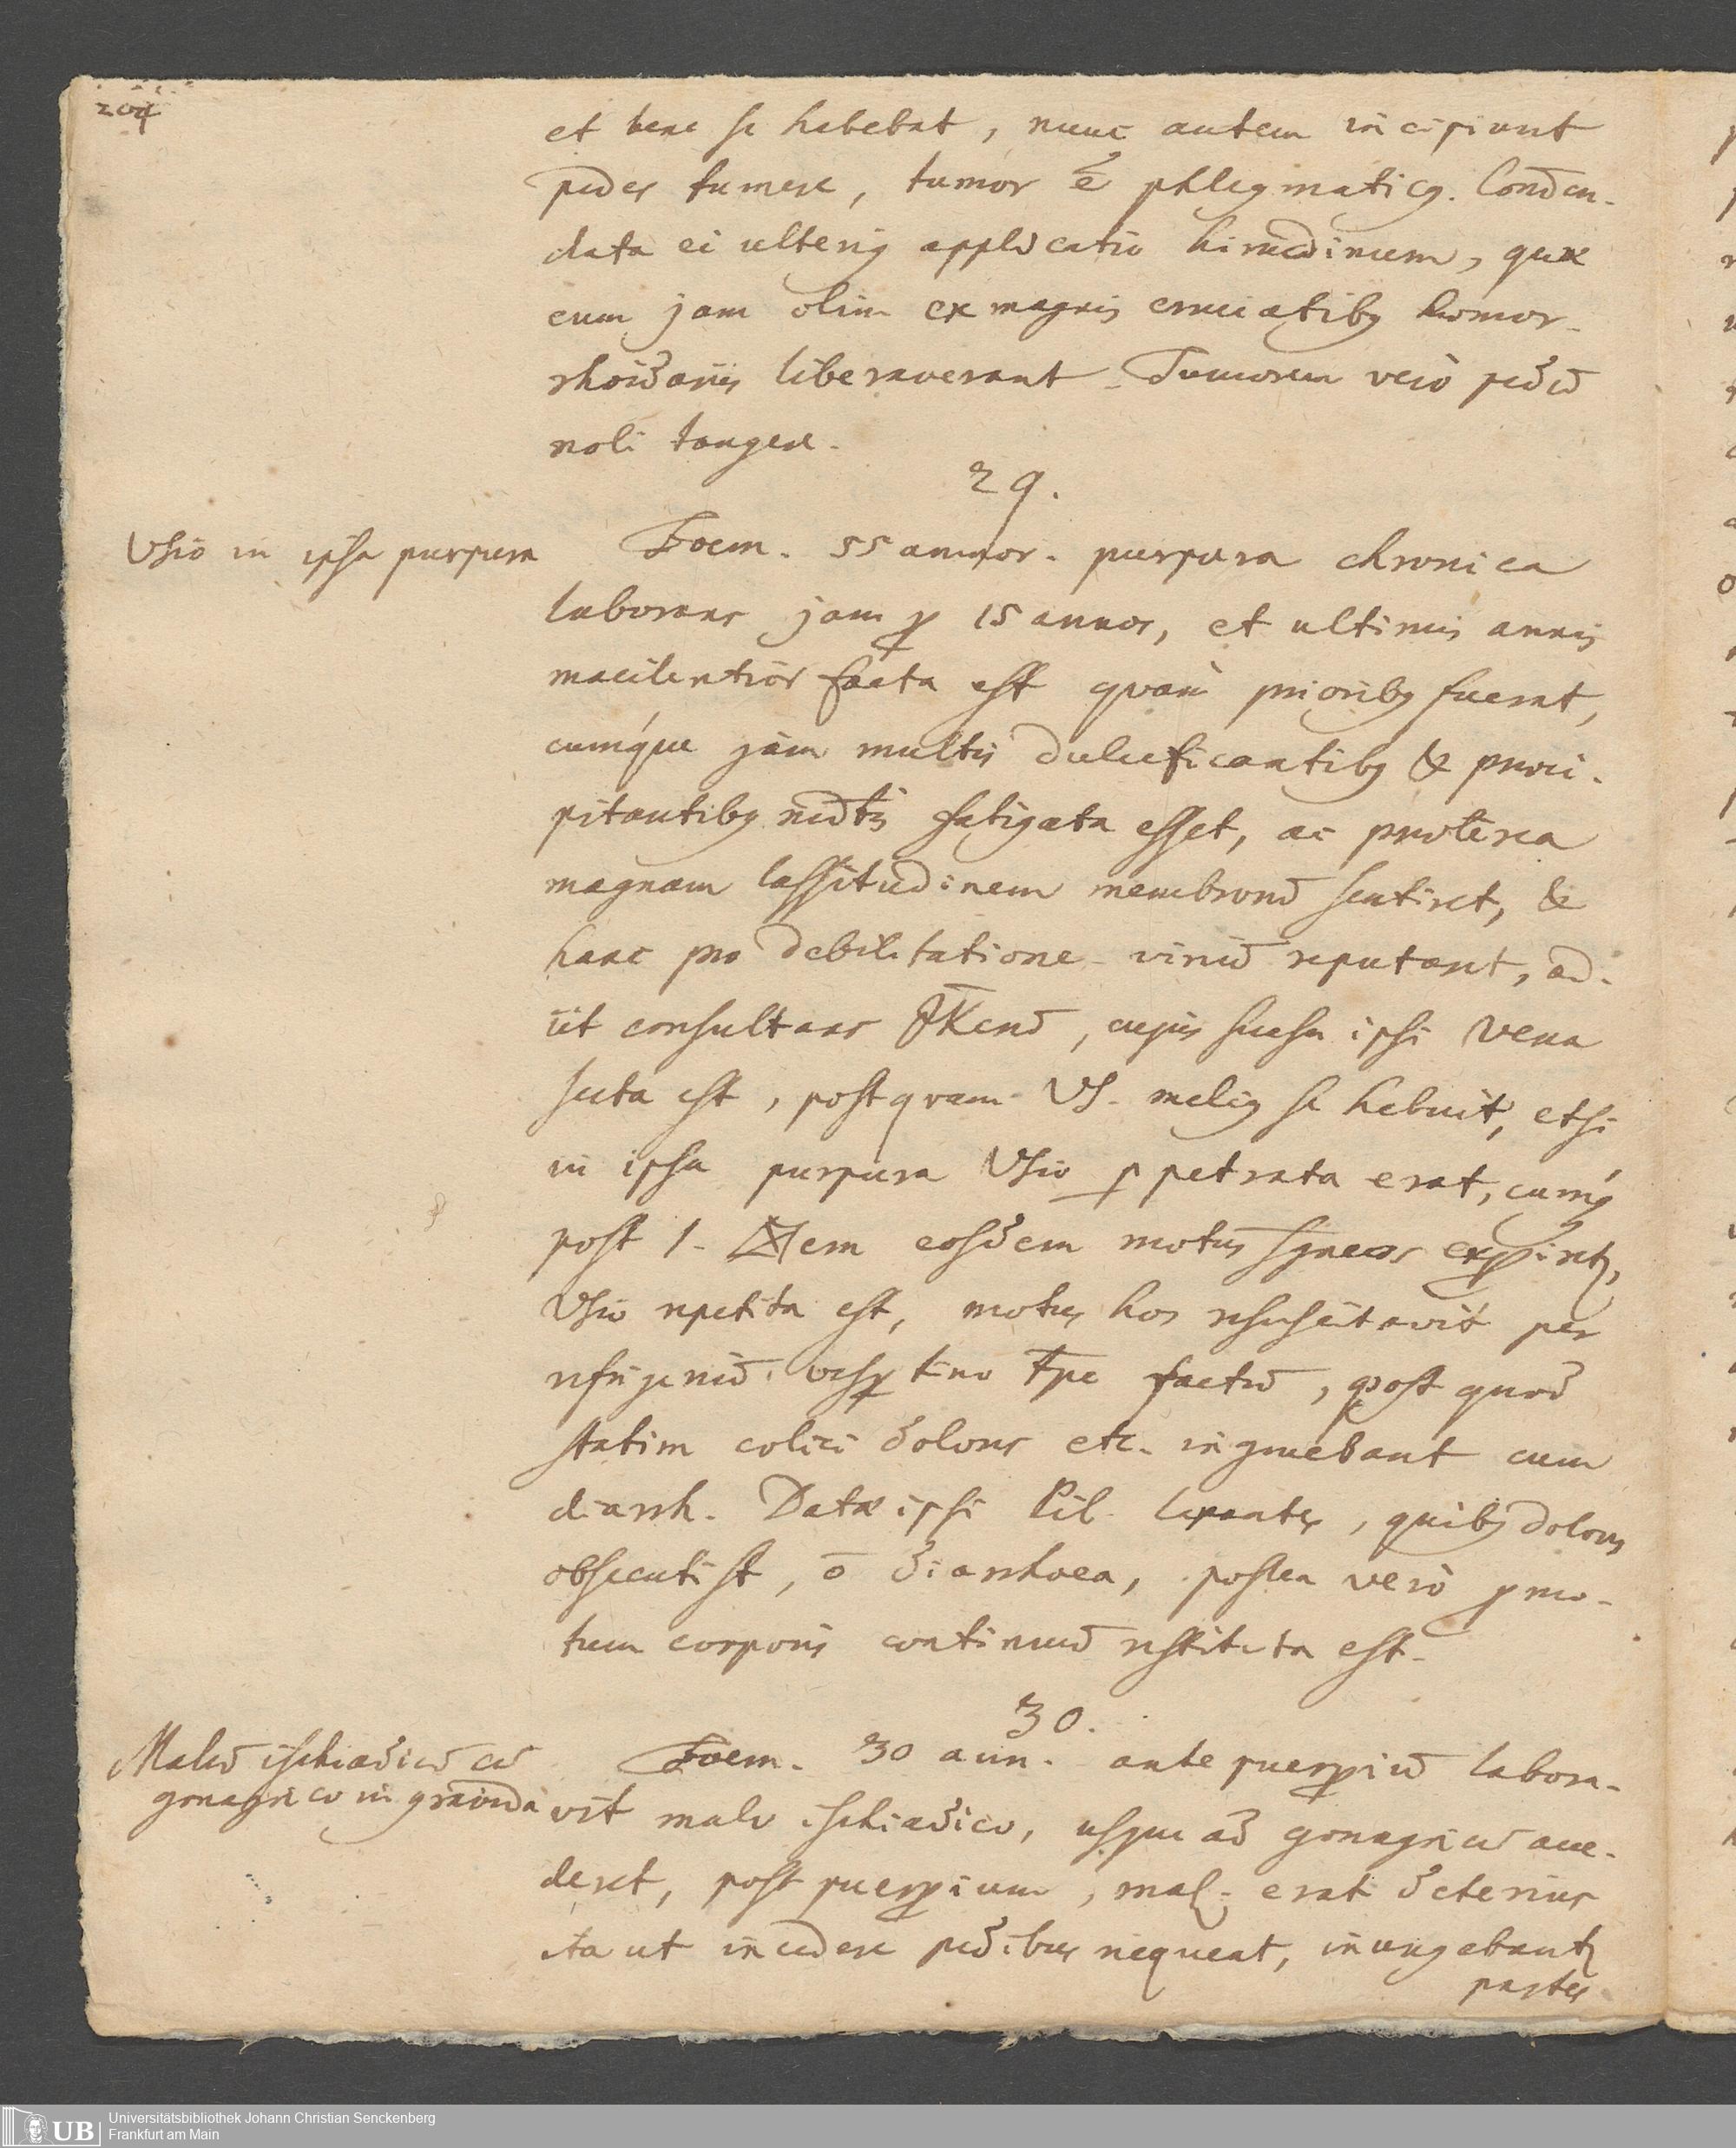 204
et bene se habebat, nunc autem incipiunt
pedes tumere, tumor ē phlegmaticꝰ. Com̄en-
data ei ulteriꝰ applicatio hirudinum, quæ
eum jam olim ex magnis cruciatibꝰ hæmor-
rhoidariis liberaverant. Tumorem verò pedū
noli tangere.
29.
VSio in ipsa purpura
Foem. 55 annor. purpura chronica
laborans jam ꝑ 15 annos, et ultimis annis
macilentior facta est qvam prioribꝰ fuerat,
cumque jam multis dulcificantibꝰ & præci-
pitantibꝰ fatigata esset, ac præterea
magnam lassitudinem membrorū sentiret, &
hanc pro debilitatione viriū reputaret, ad-
iit consultans , cujus suasu ipsi vena
secta est, postqvam VS. meliꝰ se habuit, etsi
in ipsa purpura VSio ꝑpetrata erat, cumq́
post 1. em eosdem motus exꝑiretꝛ,
VSio repetita est, motus hos resuscitavit per
refrigeriū vesꝑtino tp̄e factū, post quod
statim colici dolores etc. ingruebant cum
diarrh. Datæ ipsi Pil. laxantes, quibꝰ dolores
obsecuti st, ō diarrhoea, postea verò ꝑ mo-
tum corporis continuū restituta est.
30.
Malū ischiadicū cū
gonagrico in gravida
Foem. 30 ann. ante puerꝑiū labora-
vit malo ischiadico, usque ad gonagricū acce-
deret, post puerꝑium, malꝰ erat deterius
ita ut incedere pedibus nequeat, inungebantꝛ
partes
Universitätsbibliothek Johann Christian Senckenberg
Frankfurt am Main
UB